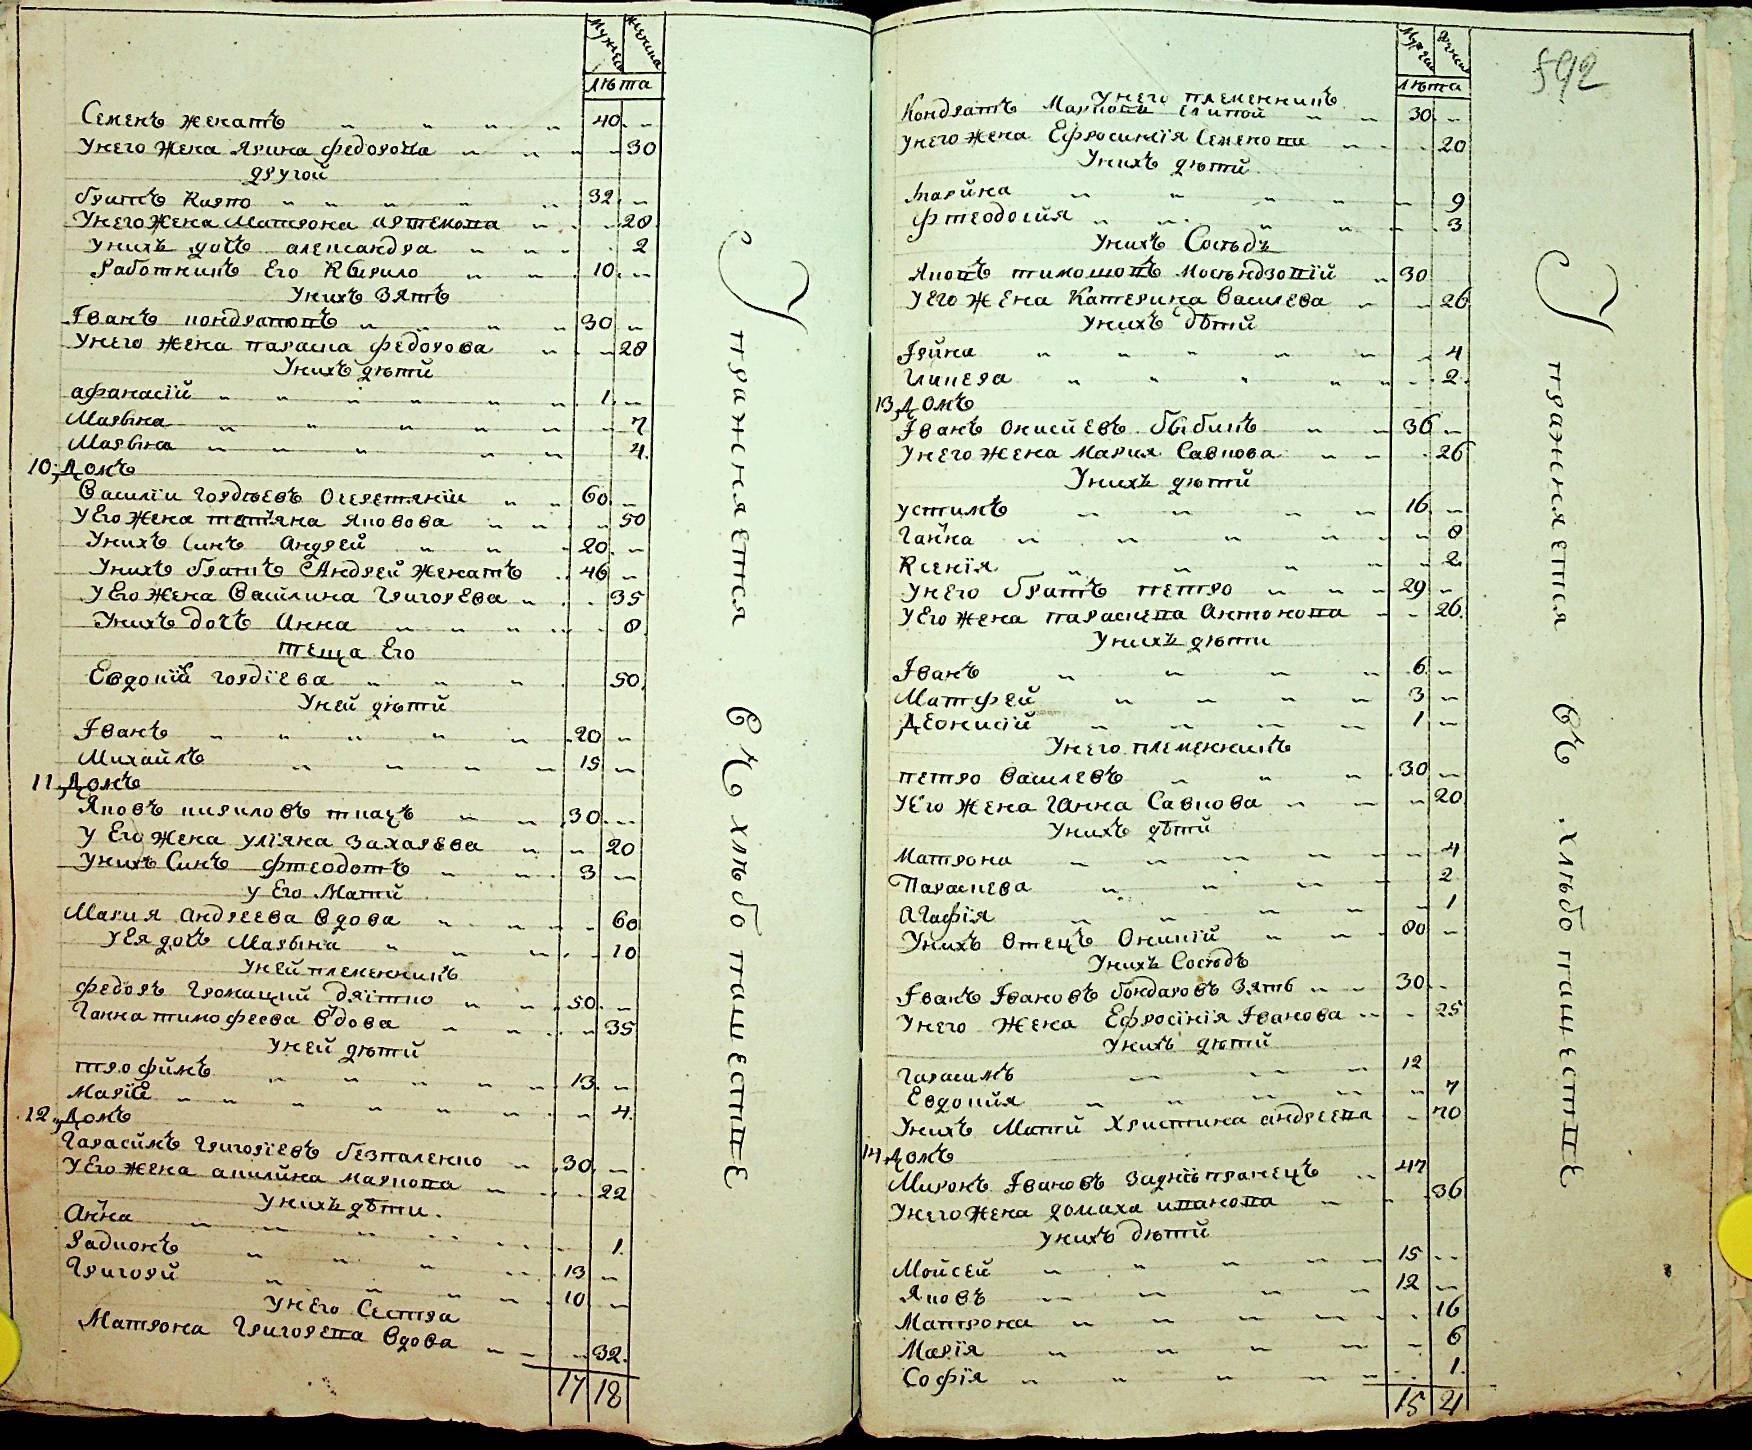 Мужеска
Женска
лѣта
Семенъ женатъ 40
Унего жена Ярина Федорова 30
другой
братъ Карпо 32
Унего жена Матрона Артемова 28
Унихъ дочъ александра 2
Работникъ Его Кырило 10
Унихъ Зятъ
Іванъ кондратовъ 30
Унего жена параска Федорова 28
Унихъ дѣтй
афанасій 1
Марына 7
Марына 4
10 Домъ
Василіи Гордѣевъ Очеретяній 60
У Его жена татяна Яковова 50
Унихъ Синъ Андрей 20
Унихъ братъ Андрей женатъ 46
У Его жена Василина Григорева 35
Унихъ дочъ Анна 8
теща Его
Евдокій гордіева 50
Уней дѣтй
Іванъ 20
Михайлъ 15
11 Домъ
Яковъ кириловъ ткачъ 30
У Его жена уліяна захарева 20
Унихъ Синъ Фтеодотъ 3
у Его Матй
Мария андреева вдова 60
У Ея дочъ Марына 10
Уней племенникъ
Федоръ Громацкий дяітко 50
Ганна тимофеева вдова 35
Уней дѣтй
трофимъ 13
Маріе 4
12 Домъ
Гарасимъ Григоріевъ безпаленко 30
У Его жена акилйна маркова 22
Унихъ дѣти
Анна 1
Радионъ 13
Григорй 10
Унего Сестра
Матрона Григорева вдова 32
17 18
Упражняется въ хлѣбопашествѣ
592
Мужеска
лѣта
Унего племенникъ
Кондратъ Марковъ 30
Унего жена Ефросинія Семенова 20
Унихъ дѣтй
марйна 9
Фтеодосія 3
Унихъ Сосѣдъ
Яковъ тимошовъ 30
У Его жена Катерина Василева 26
Унихъ дѣтй
Ірйна 4
Гликера 2
13 Домъ
Іванъ Онисиевъ быбикъ 36
Унего жена мария Савкова 26
Унихъ дѣтй
устимъ 16
Ганна 8
Ксенія 2
Унего братъ петро 29
У Его жена параскева Антонова 26
Унихъ дѣти
Іванъ 6
Матфей 3
Деонисій 1
Унего племенникъ
петро Василевъ 30
У Его жена Ганна Савкова 20
Унихъ дѣтй
матрона 4
Параскева 2
Агафія 1
Унихъ Отецъ Онисій 80
Унихъ Сосѣдъ
Іванъ Івановъ бондаровъ Зятъ 30
Унего жена Ефросінія Іванова 25
Унихъ дѣтй
Гарасимъ 12
Евдокия 7
Унихъ Матй Христина андреева 70
14 Домъ
Миронъ Івановъ заднѣпранецъ 47
Унего жена домаха иванова 36
Унихъ дѣтй
Мойсей 15
Яковъ 12
Матрона 16
Марія 6
Софія 1
15 21
Упражняется въ хлѣбопашествѣ